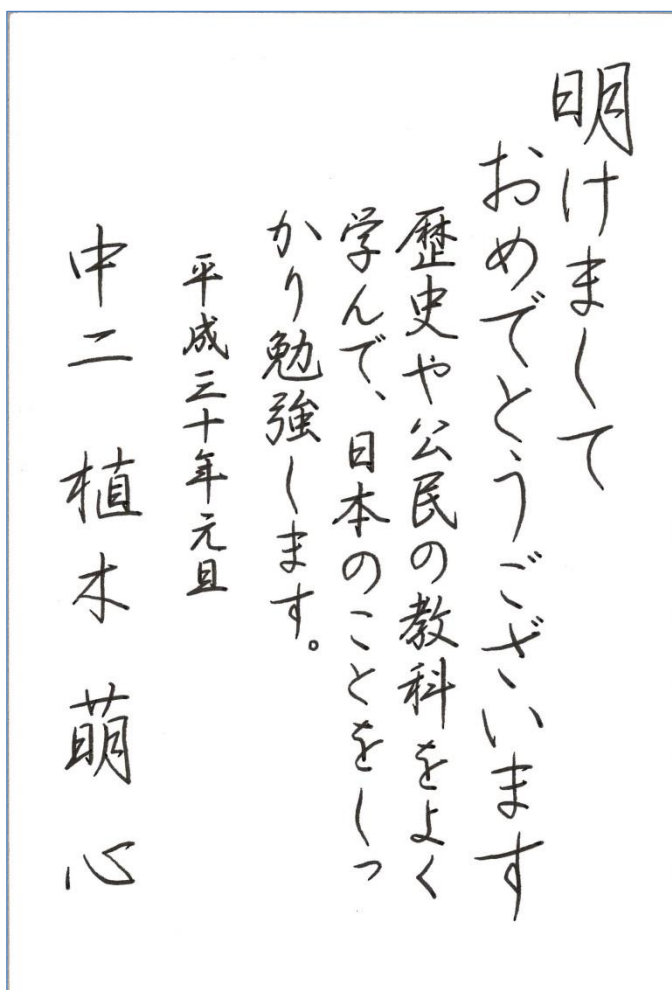 明けまして
おめでとうございます
歴史や公民の教科をよく
学んで、日本のことをしっ
かり勉強します。
平成三十年元旦
中二 植木 萌心